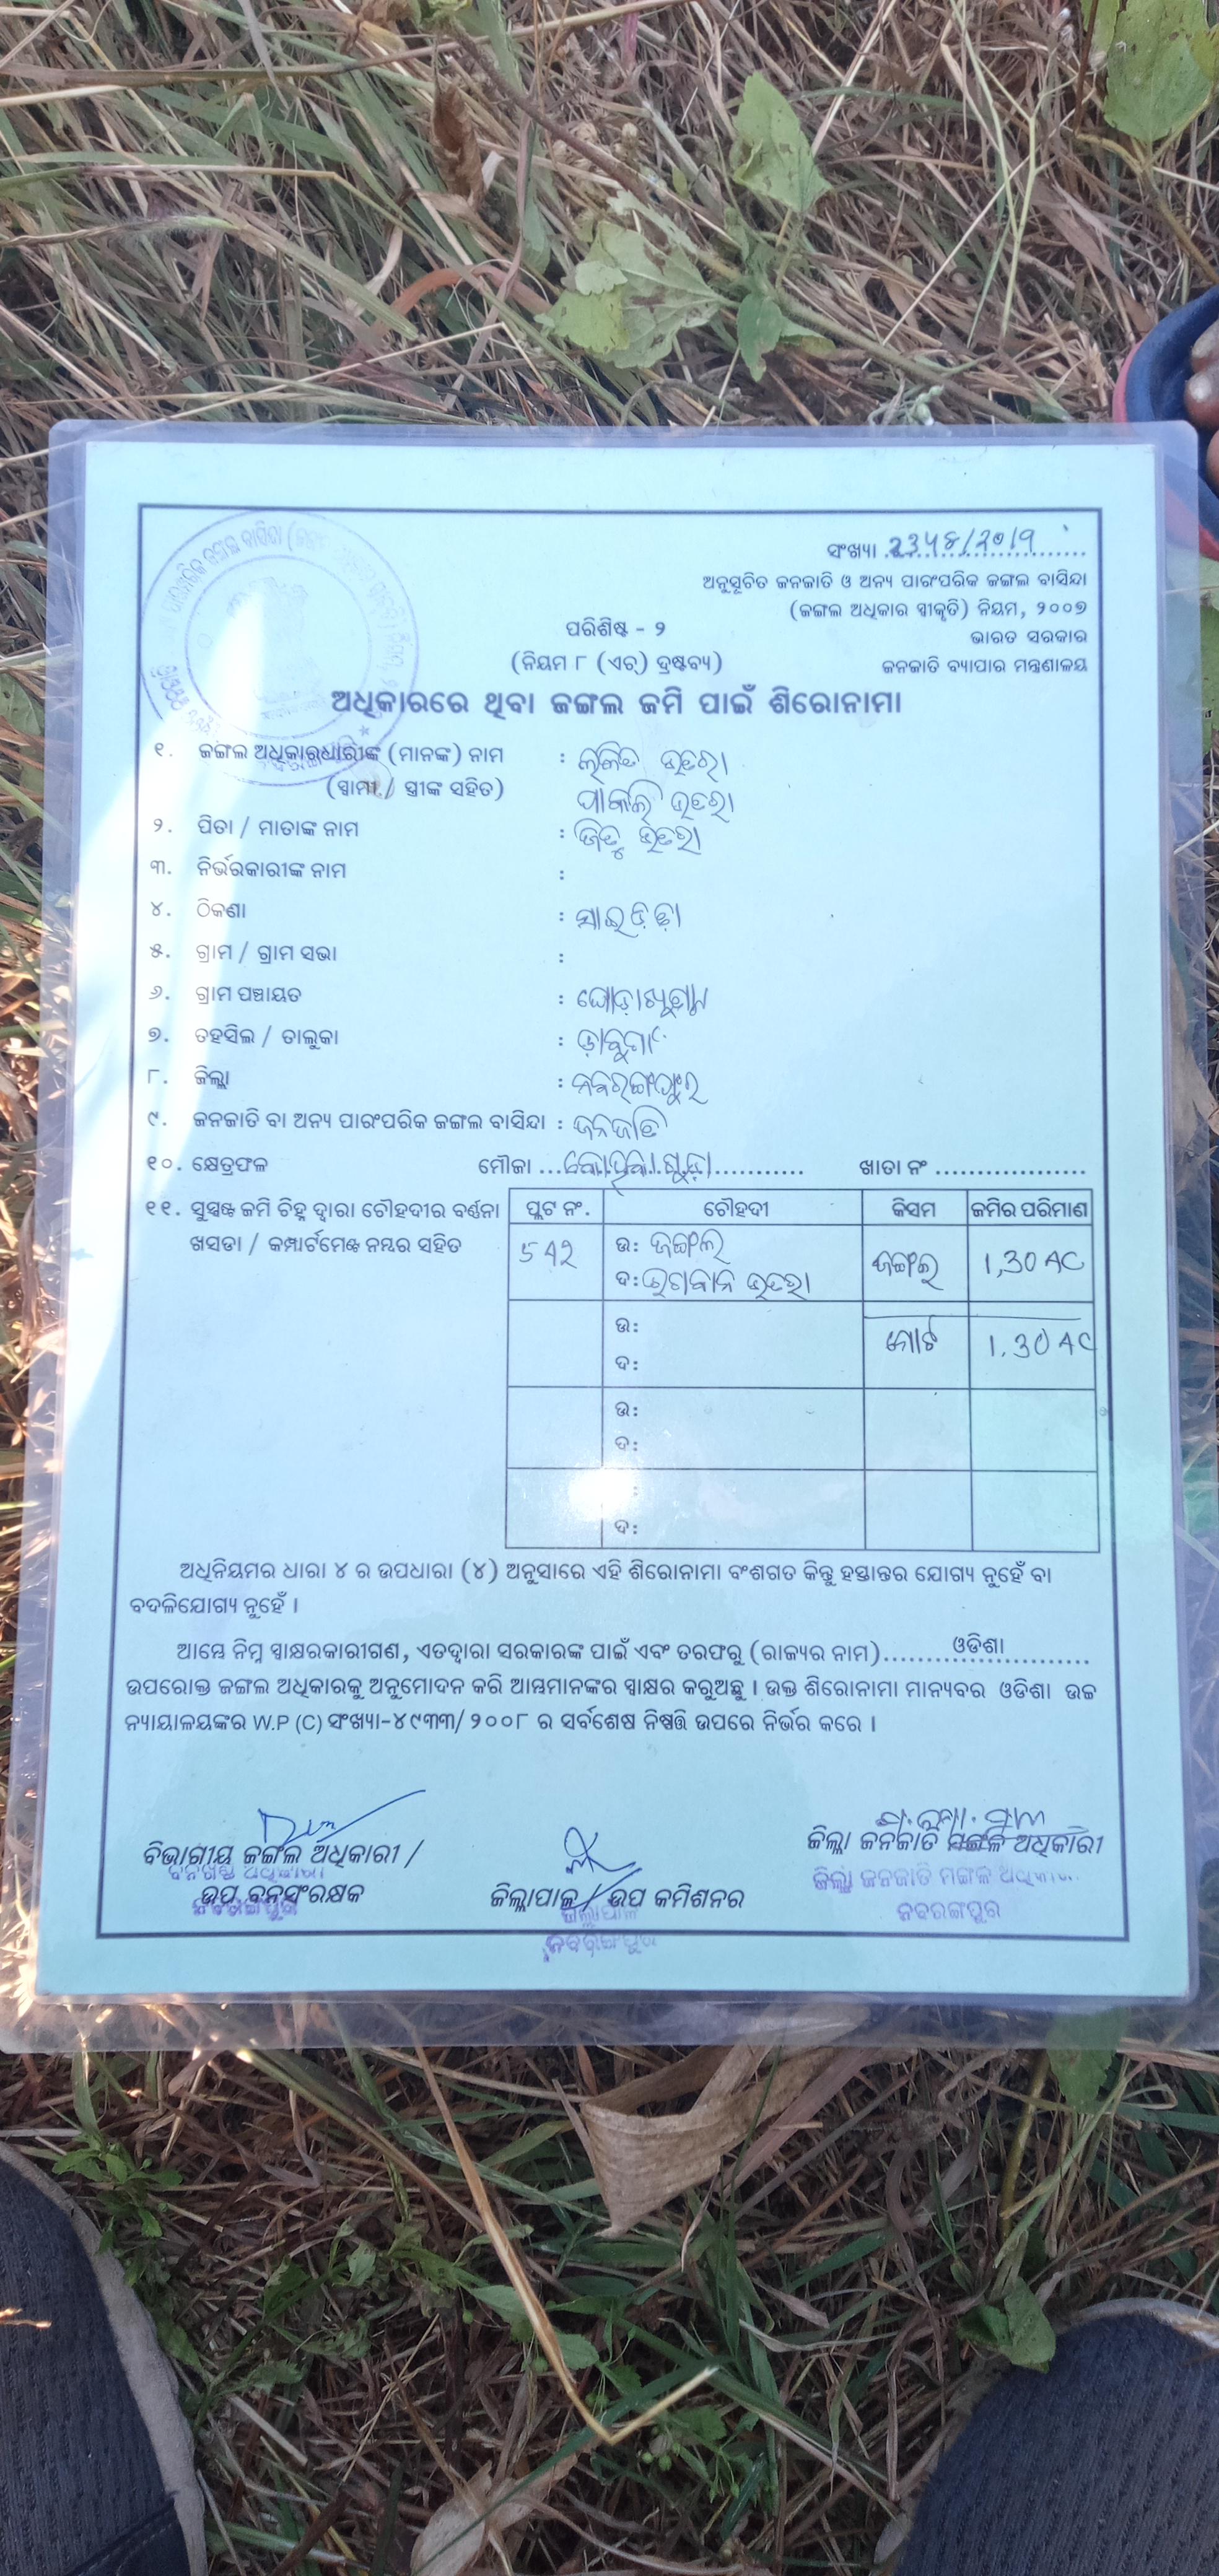 ସଂଖ୍ୟା 2348/2019
ଅନୁସୂଚିତ ଜନଜାତି ଓ ଅନ୍ୟ ପାରଂପରିକ ଜଙ୍ଗଲ ବାସିନ୍ଦା
(ଜଙ୍ଗଲ ଅଧିକାର ସ୍ୱୀକୃତି) ନିୟମ, ୨୦୦୭
ଭାରତ ସରକାର
ଜନଜାତି ବ୍ୟାପାର ମନ୍ତ୍ରଣାଳୟ
ପରିଶିଷ୍ଟ - ୨
(ନିୟମ ୮ (ଏଚ) ଦ୍ରଷ୍ଟବ୍ୟ)
ଅଧିକାରରେ ଥିବା ଜଙ୍ଗଲ ଜମି ପାଇଁ ଶିରୋନାମା
୧. ଜଙ୍ଗଲ ଅଧିକାରଧାରୀଙ୍କ (ମାନଙ୍କ) ନାମ : ଲଳିତ ଭତରା
(ସ୍ୱାମୀ / ସ୍ତ୍ରୀଙ୍କ ସହିତ) ପାକଲି ଭତରା
୨. ପିତା / ମାତାଙ୍କ ନାମ : ଜିତୁ ଭତରା
୩. ନିର୍ଭରକାରୀଙ୍କ ନାମ :
୪. ଠିକଣା :
୫. ଗ୍ରାମ / ଗ୍ରାମ ସଭା :
୬. ଗ୍ରାମ ପଞ୍ଚାୟତ :
୭. ତହସିଲ / ତାଲୁକା : ଡ଼ାବୁଗାଁ
୮. ଜିଲ୍ଲା : ନବରଙ୍ଗପୁର
୯. ଜନଜାତି ବା ଅନ୍ୟ ପାରଂପରିକ ଜଙ୍ଗଲ ବାସିନ୍ଦା : ଜନଜାତି
୧୦. କ୍ଷେତ୍ରଫଳ ମୌଜା ... ଖାତା ନଂ ..................
୧୧. ସୁସ୍ପଷ୍ଟ ଜମି ଚିହ୍ନ ଦ୍ୱାରା ଚୌହଦୀର ବର୍ଣ୍ଣନା ପ୍ଲଟ ନଂ. ଚୌହଦୀ କିସମ ଜମିର ପରିମାଣ
ଖସଡା / କମ୍ପାର୍ଟମେଣ୍ଟ ନମ୍ବର ସହିତ
542 ଉ: ଜଙ୍ଗଲ ଜଙ୍ଗଲ 1,30 AC
ଦ: ଭଗବାନ ଭତରା
ଉ: ମୋଟ 1.30 AC
ଦ:
ଉ:
ଦ:
:
ଦ:
ଅଧିନିୟମର ଧାରା ୪ ର ଉପଧାରା (୪) ଅନୁସାରେ ଏହି ଶିରୋନାମା ବଂଶଗତ କିନ୍ତୁ ହସ୍ତାନ୍ତର ଯୋଗ୍ୟ ନୁହେଁ ବା
ବଦଳିଯୋଗ୍ୟ ନୁହେଁ ।
ଆମ୍ଭେ ନିମ୍ନ ସ୍ୱାକ୍ଷରକାରୀଗଣ, ଏତଦ୍ୱାରା ସରକାରଙ୍କ ପାଇଁ ଏବଂ ତରଫରୁ (ରାଜ୍ୟର ନାମ) ଓଡିଶା
ଉପରୋକ୍ତ ଜଙ୍ଗଲ ଅଧିକାରକୁ ଅନୁମୋଦନ କରି ଆମ୍ଭମାନଙ୍କର ସ୍ୱାକ୍ଷର କରୁଅଛୁ । ଉକ୍ତ ଶିରୋନାମା ମାନ୍ୟବର ଓଡିଶା ଉଚ୍ଚ
ନ୍ୟାୟାଳୟଙ୍କର W.P (C) ସଂଖ୍ୟା-୪୯୩୩/୨୦୦୮ ର ସର୍ବଶେଷ ନିଷ୍ପତ୍ତି ଉପରେ ନିର୍ଭର କରେ ।
ବିଭାଗୀୟ ଜଙ୍ଗଲ ଅଧିକାରୀ /
ଉପ ବନସଂରକ୍ଷକ
ନବରଙ୍ଗପୁର
ଜିଲ୍ଲାପାଳ / ଉପ କମିଶନର
ଜିଲ୍ଲାପାଳ
ନବରଙ୍ଗପୁର
ଜିଲ୍ଲା ଜନଜାତି ମଙ୍ଗଳ ଅଧିକାରୀ
ଜିଲ୍ଲା ଜନଜାତି ମଙ୍ଗଳ
ନବରଙ୍ଗପୁର